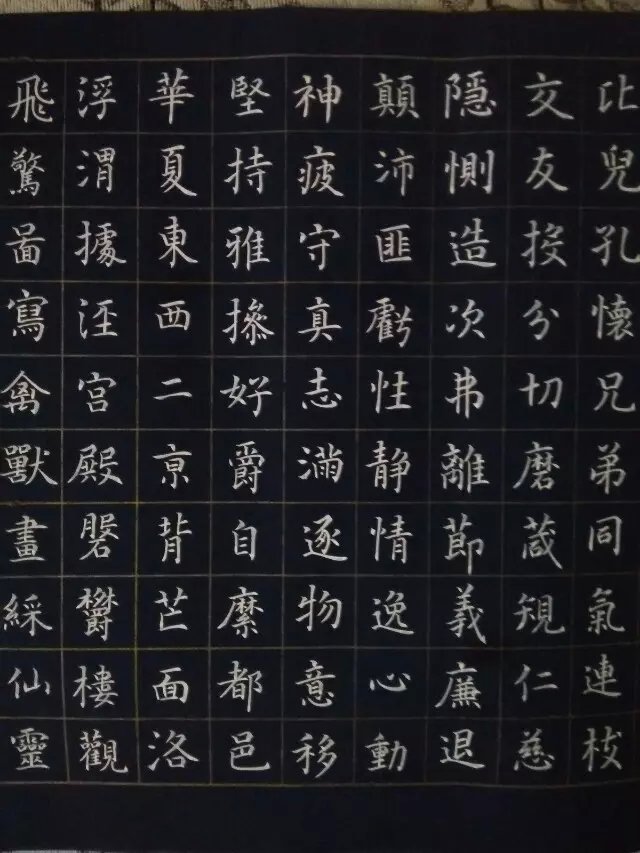 比兒孔懷兄弟同氣連枝
交友投分切磨葴䂓仁慈
隠惻造次弗離節義廉退
顛沛匪虧性静情逸心動
神疲守真志滿逐物意移
堅持雅操好爵自縻都邑
華夏東西二亰背芒面洛
浮渭據涇宫殿磐欝樓觀
飛驚啚寫禽獸畫綵仙靈